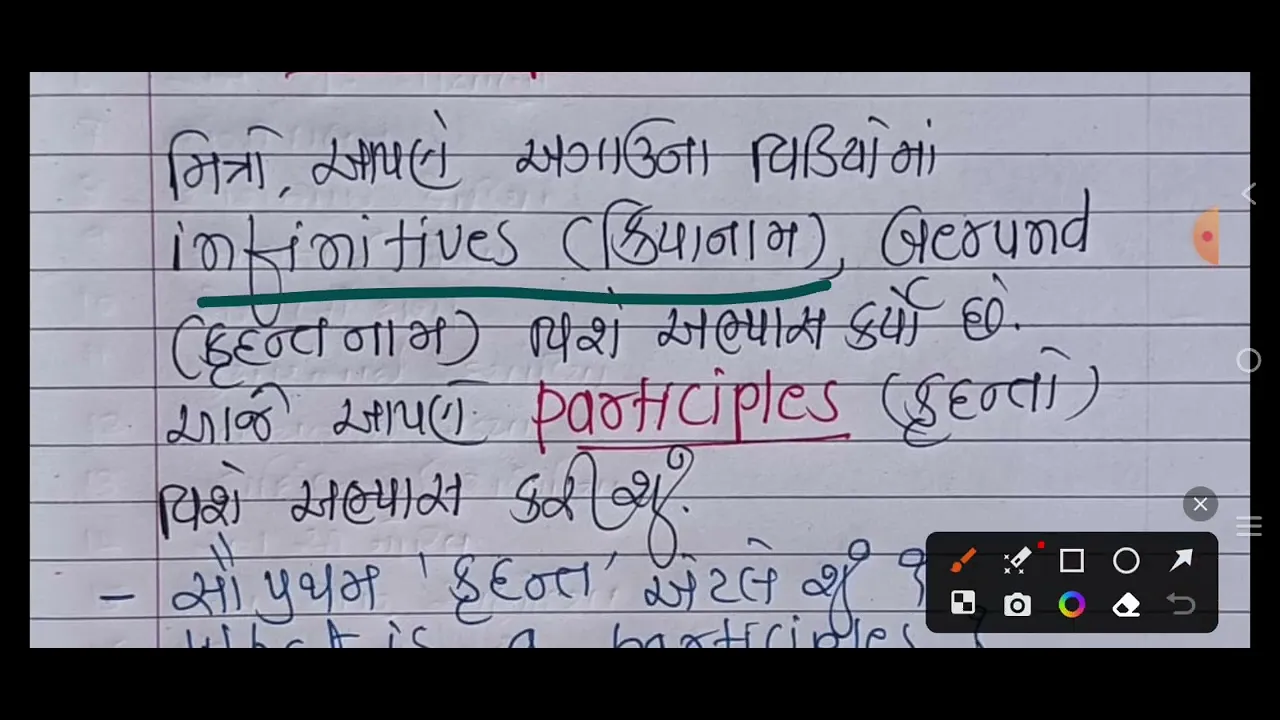 મિત્રો, આપણે અગાઉના વિડિયોમાં
infinitives (ક્રિયાનામ), Gerund
(કૃદન્ત નામ) વિશે અભ્યાસ કર્યો છે.
આજે આપણે participles (કૃદન્તો)
વિશે અભ્યાસ કરીશું.
- સૌ પ્રથમ 'કૃદન્ત' એટલે શું ?
What is a participles ?